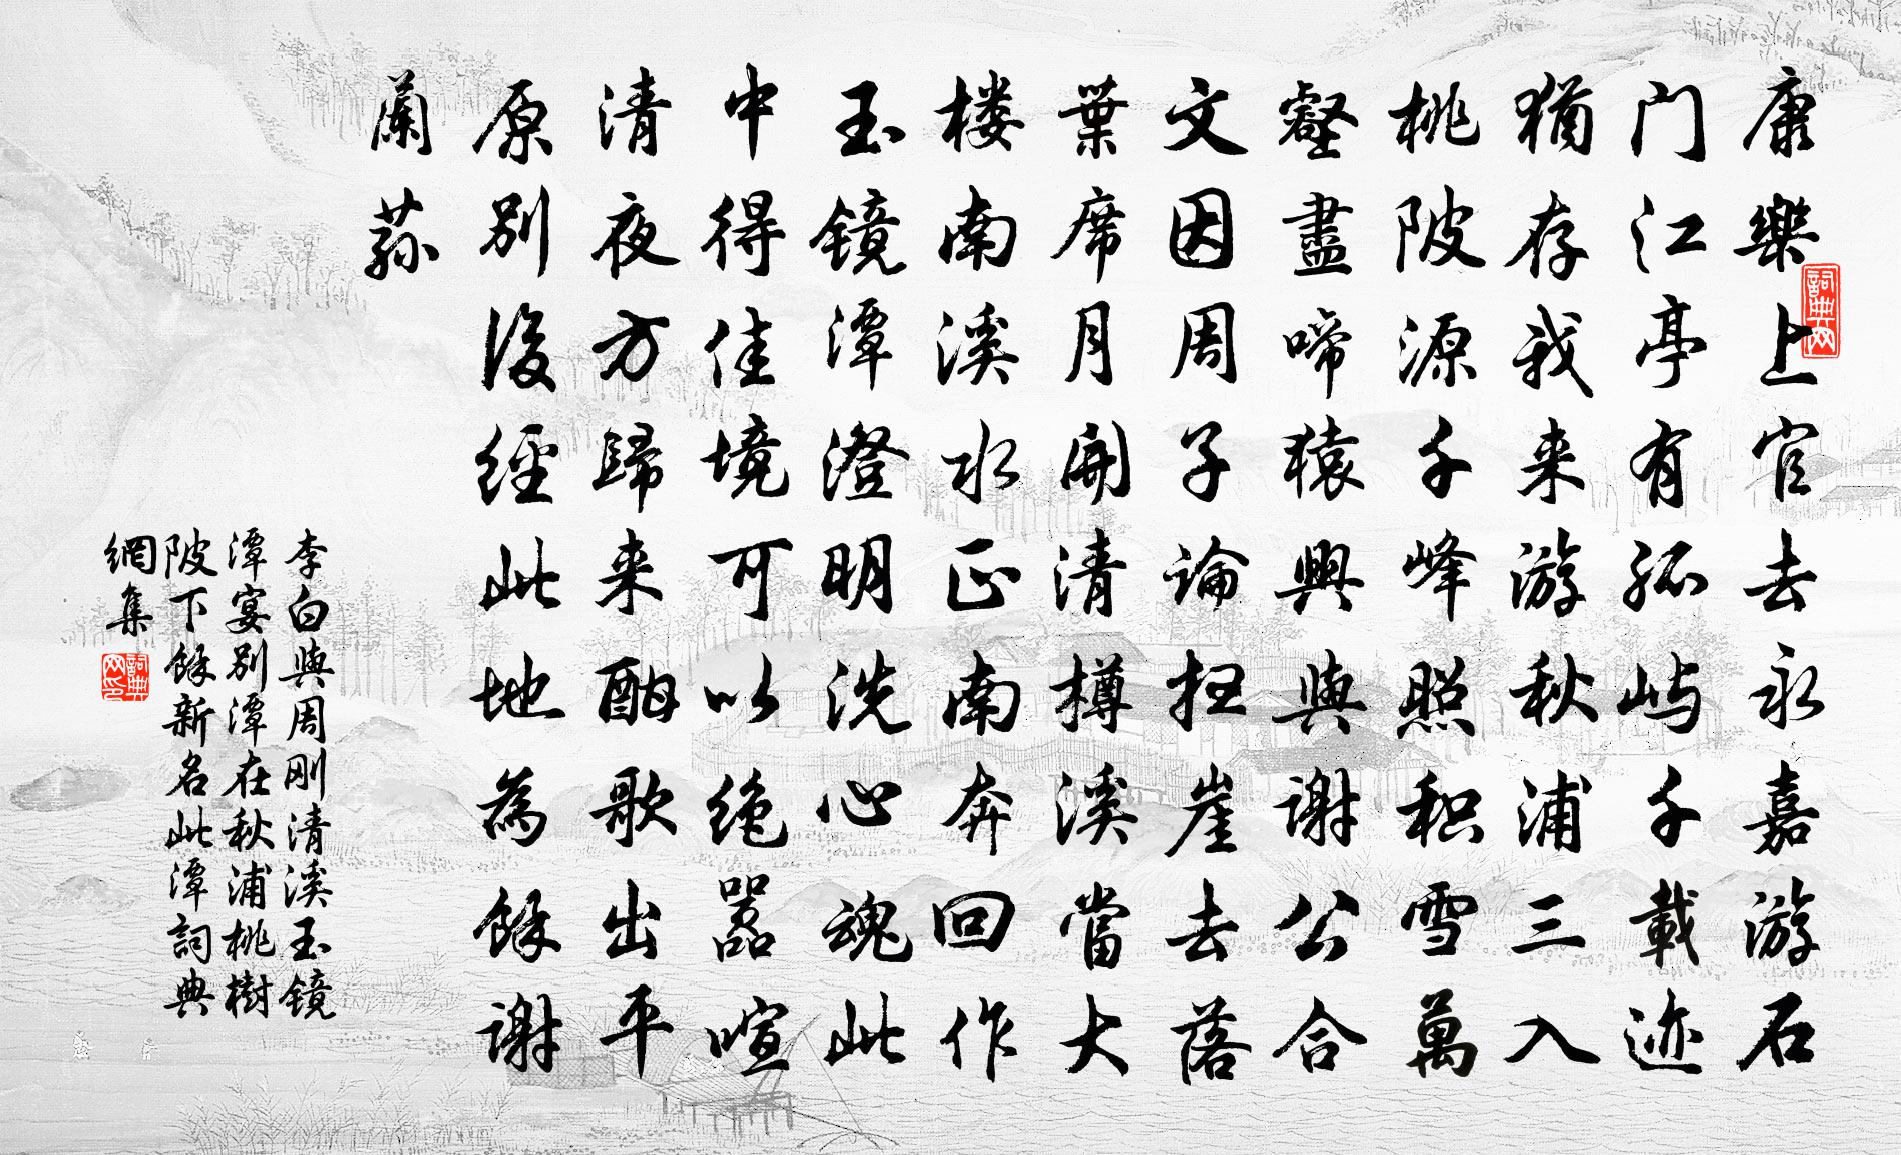 康樂上官去永嘉游石
门江亭有孤屿千載迹
犹存我来游秋浦三入
桃陂源千峰照积雪萬
壑盡啼猿興與谢公合
文因周子論扫崖去落
葉席月開清樽溪當大
楼南溪水正南奔回作
玉镜潭澄明洗心魂此
中得佳境可以绝嚣喧
清夜方歸来酣歌出平
原别後經此地為餘谢
蘭荪
李白與周刚清溪玉镜
潭宴别潭在秋浦桃樹
陂下餘新名此潭詞典
網集
詞典网
詞典网印